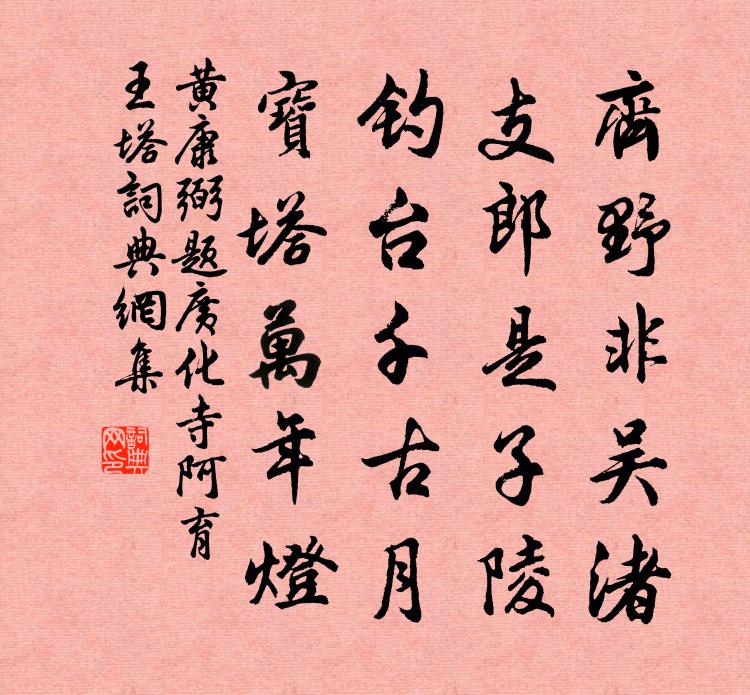 齊野非吴渚
支郎是子陵
钓台千古月
寶塔萬年燈
黄康弼题廣化寺阿育
王塔詞典網集
詞典
网印